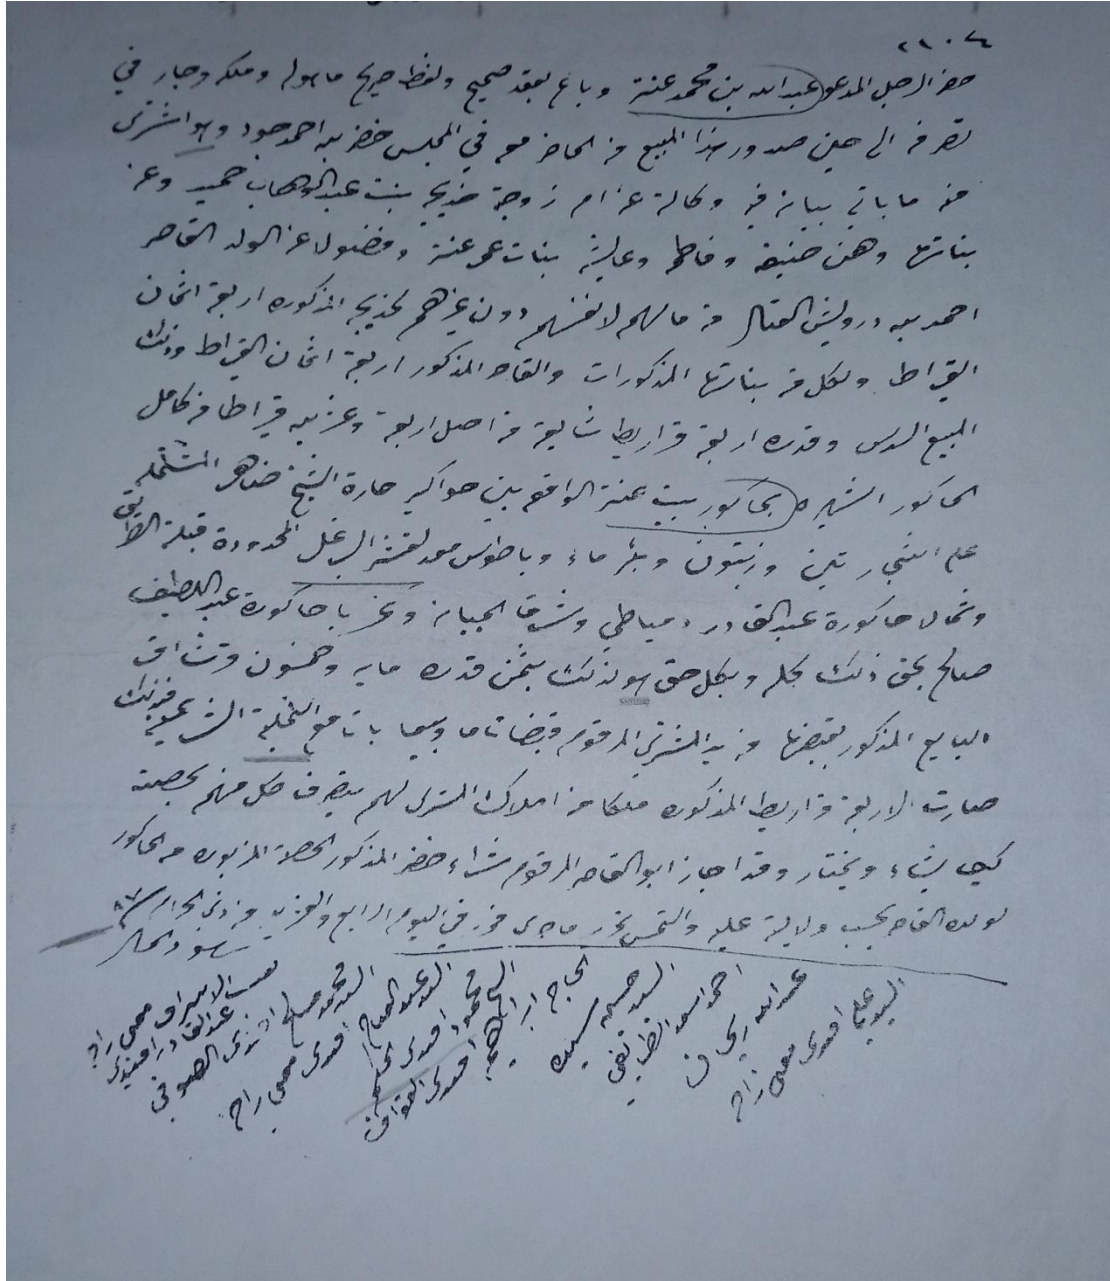 حضر الرجل المدعو عبد الله بن محمد عنتة وباع بعقد صحيح ولفظ صريح ما هو له وملكه وجار في
تصرفه الى حين صدور هذا المبيع من الحاضر معه في المجلس خضر بن احمد حمود وهو اشترى
منه ما ياتي بيانه فيه وكالة عن ام زوجته خديجة بنت عبد الوهاب حميد وعن
بناتها وهن حنيفة وفاطمة وعايشة بنات عمر عنتة وفضولا عن الولد القاصر
احمد بن درويش الفتال من مالهم لانفسهم دون غيرهم لخديجة المذكورة اربعة اثمان
القيراط ولكل من بناتها المذكورات والقاصر المذكور اربعة اثمان القيراط وذلك
المبيع السدس وقدره اربعة قراريط شايعة من اصل اربعة وعشرين قيراطا من كامل
الحاكورة الشهيرة بحاكورة بيت عنتة الواقع بين حواكير حارة الشيخ ضاهر المشتملة
على اشجار تين وزيتون وبئر ماء وباطوس معد لفقش الزغل المحدودة قبلة الطريق
وشمالا حاكورة عبد القادر دمياطي وشرقا الجبانة وغربا حاكورة عبد اللطيف
صالح بحق ذلك كله وبكل حق هو لذلك بثمن قدره ماية وخمسون قرشا اقر
البايع المذكور بقبضها من يد المشتري المرقوم قبضا تاما وبيعا باتا مع التخلية الشرعية فبذلك
صارت الاربعة قراريط المذكورة ملكا من املاك المشترى لهم يتصرف كل منهم بحصته
كيف يشاء ويختار وقد اجاز ابو القاصر المرقوم شراء خضر المذكور الحصة المزبورة من الحاكورة
لولده القاصر بحسب ولايته عليه والتمس تحرير ما جرى فحرر في اليوم الرابع والعشرين من ذي الحجة الحرام
شهود الحال
السيد علي افندي مفتي زاده
عبد الله ريحان
احمد اسعد القطايفي
السيد حسن
الحاج ابراهيم افندي القواف
السيد محمود افندي
السيد عبد الفتاح افندي مفتي زاده
السيد محمد صالح افندي الصوفي
نقيب الاشراف عبد القادر افندي مفتي زاده